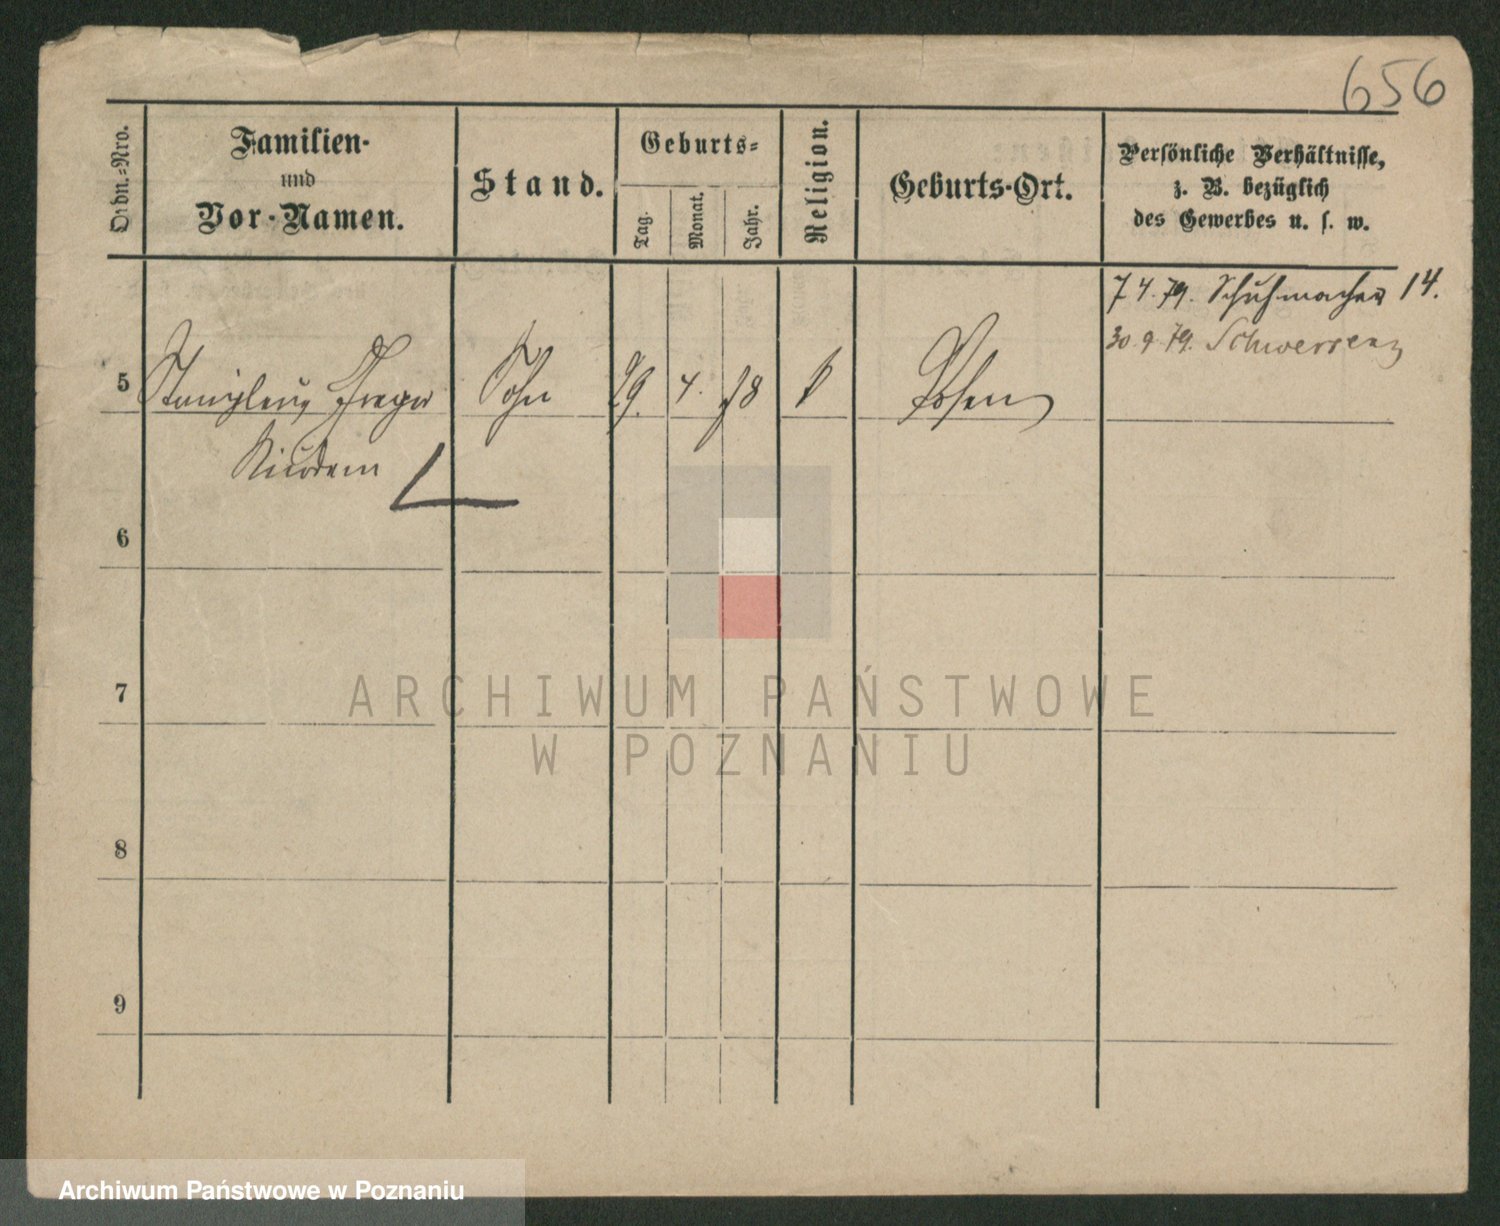 656
Ordn.-Nro.
Familien-
und
Vor-Namen.
Stand.
Geburts-
Tag.
Monat.
Jahr.
Religion.
Geburts-Ort.
Persönliche Verhältnisse,
z. B. bezüglich
des Gewerbes u. s. w.
7 4. 79. Schuhmacher 14.
30. 9. 79. Schwersenz
5 Sohn 29. 4. 78 k Posen
Nicodem
6
7
8
9
ARCHIWUM PAŃSTWOWE
W POZNANIU
Archiwum Państwowe w Poznaniu